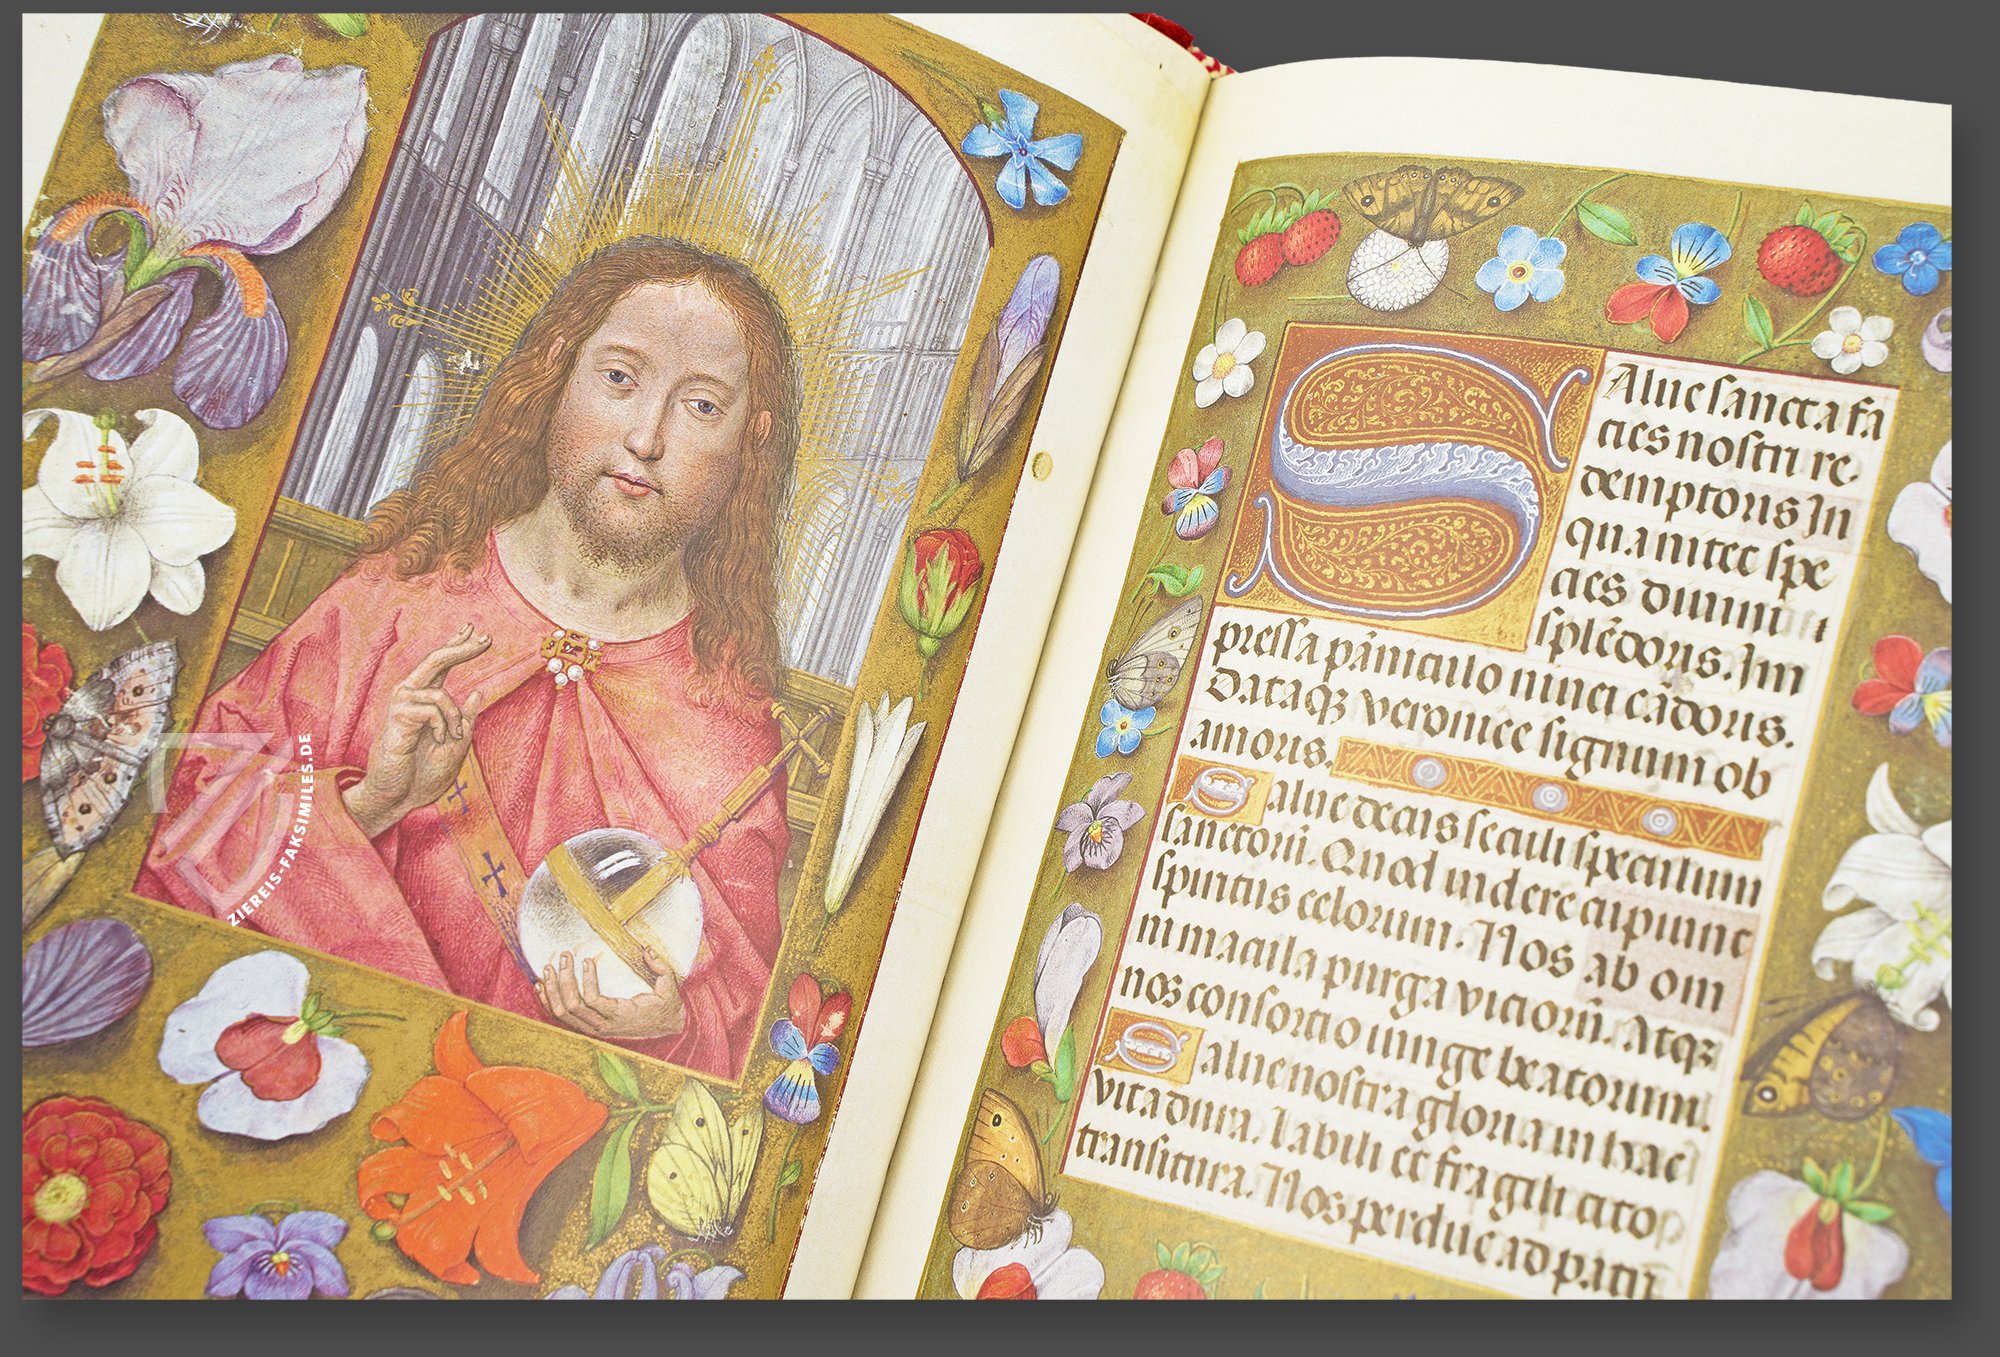 ZIEREIS-FAKSIMILES.DE
Salue sancta fa
cies nostri re
demptoris In
qua nitet spe
cies diuini
splēdoris. Im
pressa pāniculo niuei cādoris.
Dataqȝ veronice signum ob
amoris.
Salue decus seculi speculum
sanctorū. Quod uidere cupiunc
spiritus celorum. Nos ab om
ni macula purga viciorū. Atqȝ
nos consortio iunge beatorum.
Salue nostra gloria in hac
vita dura. Labili et fragili cito
transitura. Nos perduc ad patri